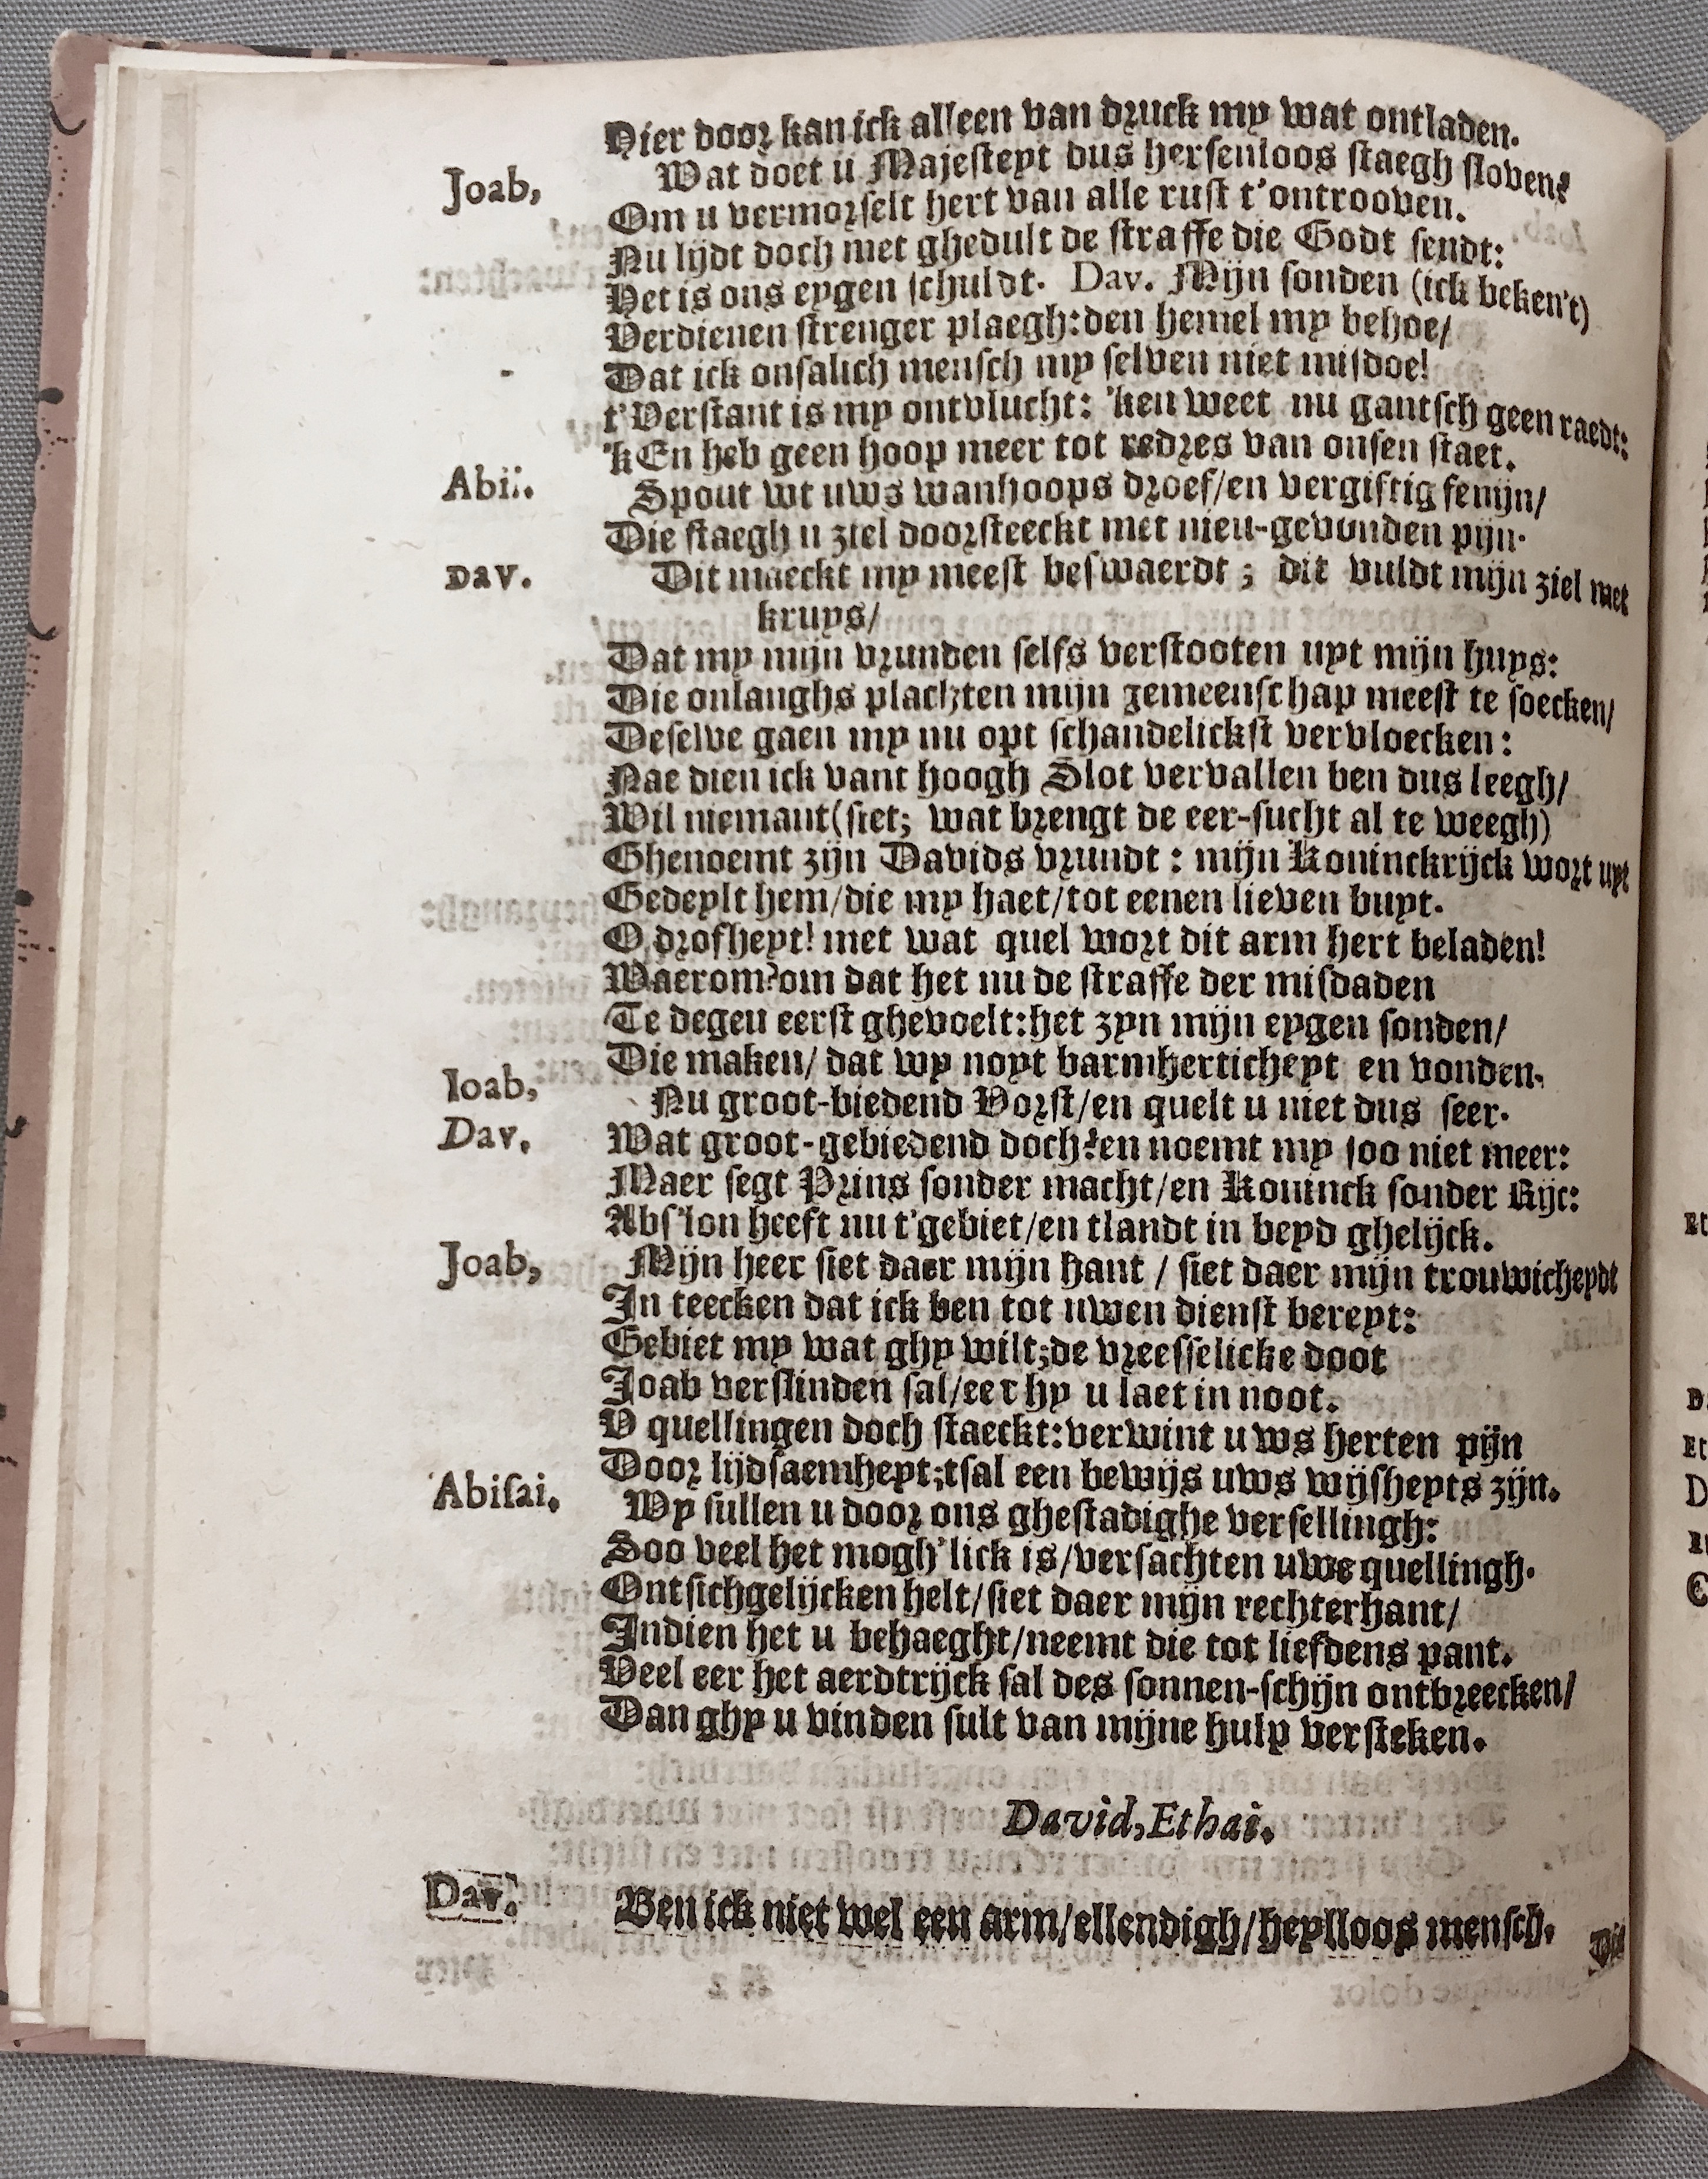 Hier door kan ick alleen van druck my wat ontladen.
Joab, Wat doet u Majesteyt dus hersenloos staegh sloven?
Om u vermorselt hert van alle rust t'ontrooven.
Nu lijdt doch met ghedult de straffe die Godt sendt:
Het is ons eygen schuldt. Dav. Mijn sonden (ick beken't)
Verdienen strenger plaegh: den hemel my behoe/
Dat ick onsalich mensch my selven niet misdoe!
t'Verstant is my ontvlucht: 'ken weet nu gantsch geen raedt:
'k En heb geen hoop meer tot redres van onsen staet.
Abis. Spout wt uws wanhoops droef/en vergiftig fenijn/
Die staegh u ziel doorsteeckt met nieu-gevonden pijn.
DAV. Dit maeckt my meest beswaerdt; dit vuldt mijn ziel met
kruys/
Dat my mijn vrunden selfs verstooten uyt mijn huys:
Die onlanghs plachten mijn gemeenschap meest te soecken/
Deselve gaen my nu opt schandelickst vervloecken:
Nae dien ick vant hoogh Slot vervallen ben dus leegh/
Wil niemant (siet; wat brengt de eer-sucht al te weegh)
Ghenoemt zijn Davids vrundt: mijn Koninckrijck wort uyt
Gedeylt hem/die my haet/tot eenen lieven buyt.
O drofheyt! met wat quel wort dit arm hert beladen!
Waerom? om dat het nu de straffe der misdaden
Te degen eerst ghevoelt: het zyn mijn eygen sonden/
Die maken/ dat wy noyt barmhertichept en vonden.
Ioab, Nu groot-biedend Vorst/en quelt u niet dus seer.
Dav. Wat groot-gebiedend doch? en noemt my soo niet meer:
Maer segt Prins sonder macht/en Koninck sonder Rijc:
Abs'lon heeft nu t'gebiet/en tlandt in beyd ghelijck.
Joab, Mijn heer siet daer mijn hant / siet daer mijn trouwicheydt
In teecken dat ick ben tot uwen dienst bereyt:
Gebiet my wat ghy wilt; de vreesselicke doot
Joab verslinden sal/eer hy u laet in noot.
V quellingen doch staeckt: verwint uws herten pijn
Door lijdsaemheyt; tsal een bewijs uws wijsheyts zijn.
Abisai. Wy sullen u door ons ghestadighe versellingh:
Soo veel het mogh'lick is/versachten uws quellingh.
Ontsichgelijcken helt/siet daer mijn rechterhant/
Indien het u behaeght/neemt die tot liefdens pant.
Veel eer het aerdtrijck sal des sonnen-schijn ontbreecken/
Dan ghy u vinden sult van mijne hulp versteken.
David, Ethai.
Dav. Ben ick niet wel een arm/ellendigh/heylloos mensch.